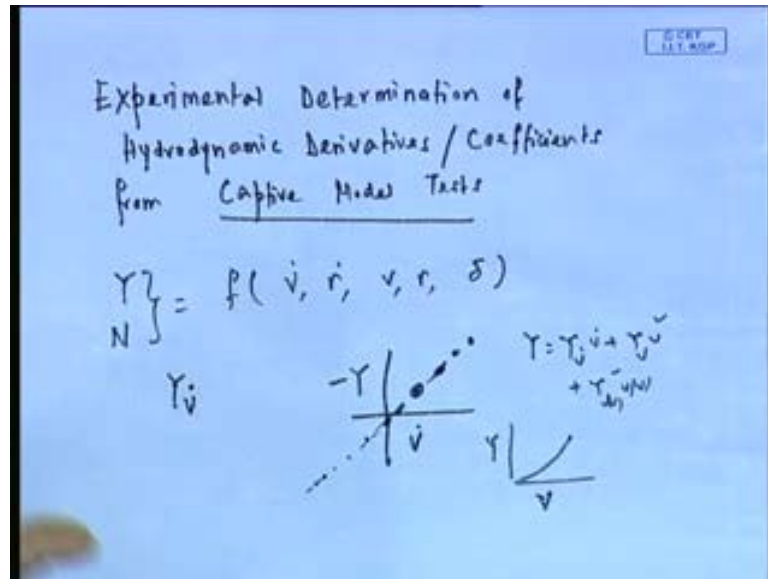 © CET
I.I.T. KGP
Experimental Determination of
Hydrodynamic Derivatives / Coefficients
from Captive Model Tests
Y
N } = f( v̇, ṙ, v, r, δ )
Y_v̇
-Y
v̇
Y = Y_v̇ v̇ + Y_v v
+ Y v|v|
Y
v